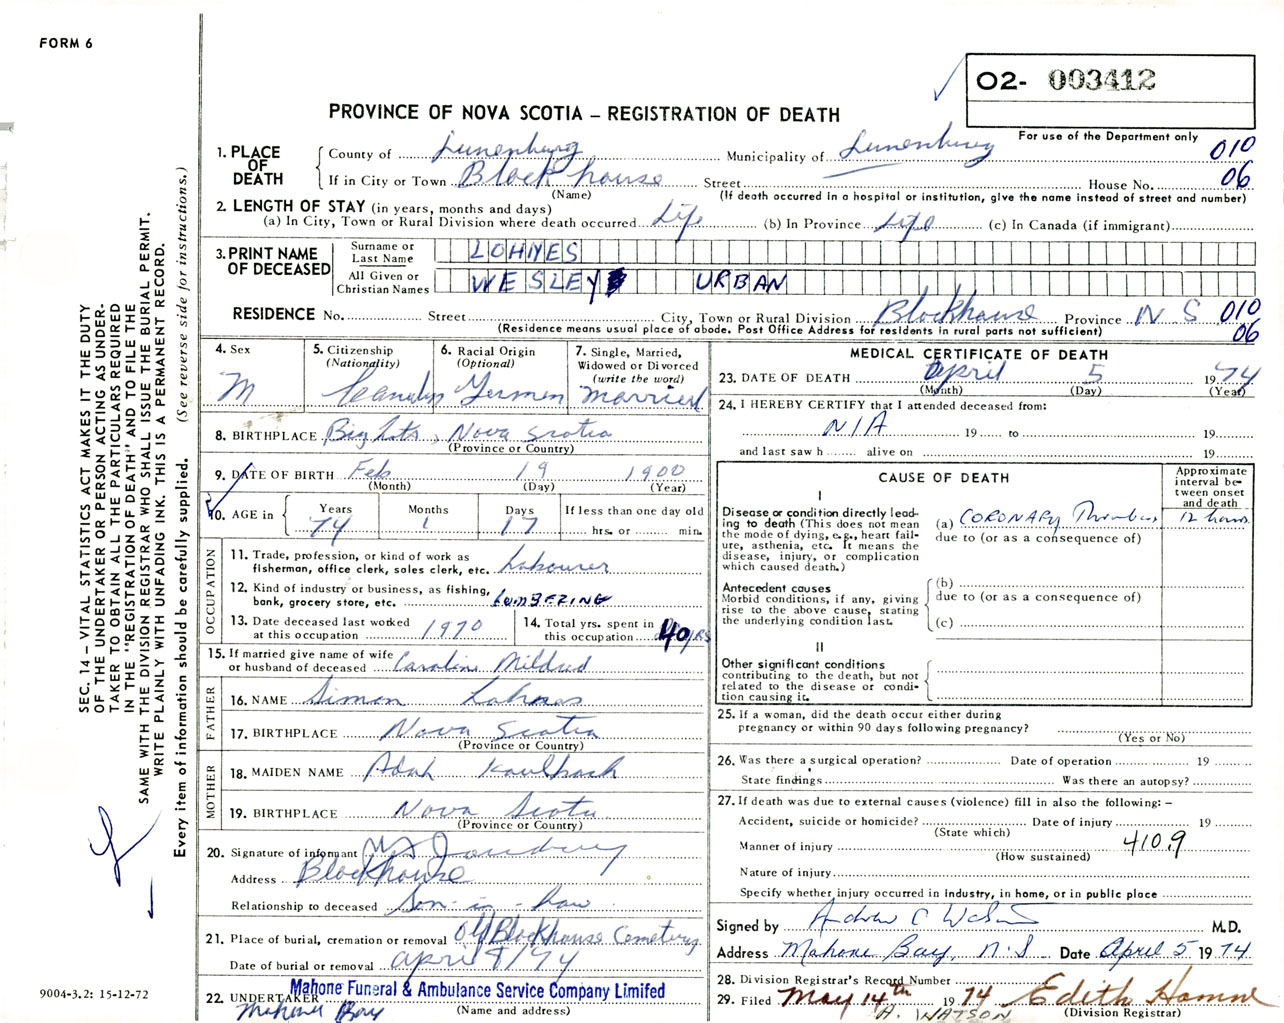 FORM 6
O2- 003412
PROVINCE OF NOVA SCOTIA – REGISTRATION OF DEATH
For use of the Department only
1. PLACE OF DEATH
County of Lunenburg Municipality of Lunenburg 010
If in City or Town Block house Street House No. 06
(Name) (If death occurred in a hospital or institution, give the name instead of street and number)
2. LENGTH OF STAY (in years, months and days)
(a) In City, Town or Rural Division where death occurred Life (b) In Province Life (c) In Canada (if immigrant)
3. PRINT NAME OF DECEASED
Surname or Last Name LOHNES
All Given or Christian Names WESLEY URBAN
RESIDENCE No. Street City, Town or Rural Division Blockhouse Province N S 010
(Residence means usual place of abode. Post Office Address for residents in rural parts not sufficient) 06
4. Sex
M
5. Citizenship
(Nationality)
Canadian
6. Racial Origin
(Optional)
German
7. Single, Married,
Widowed or Divorced
(write the word)
married
8. BIRTHPLACE Big Lots, Nova Scotia
(Province or Country)
9. DATE OF BIRTH Feb 19 1900
(Month) (Day) (Year)
10. AGE in
Years Months Days If less than one day old
74 1 17 hrs. or min.
OCCUPATION
11. Trade, profession, or kind of work as
fisherman, office clerk, sales clerk, etc. Labourer
12. Kind of industry or business, as fishing,
bank, grocery store, etc. LumBERING
13. Date deceased last worked
at this occupation 1970
14. Total yrs. spent in
this occupation 40 YRS
15. If married give name of wife
or husband of deceased Caroline Mildred
FATHER
16. NAME Simon Lohnes
17. BIRTHPLACE Nova Scotia
(Province or Country)
MOTHER
18. MAIDEN NAME Adah Kaulback
19. BIRTHPLACE Nova Scotia
(Province or Country)
20. Signature of informant
Address Blockhouse
Relationship to deceased Son-in-law
21. Place of burial, cremation or removal Old Blockhouse Cemetery
Date of burial or removal april 8/74
22. UNDERTAKER Mahone Funeral & Ambulance Service Company Limited
Mahone Bay (Name and address)
MEDICAL CERTIFICATE OF DEATH
23. DATE OF DEATH April 5 1974
(Month) (Day) (Year)
24. I HEREBY CERTIFY that I attended deceased from:
N/A 19 to 19
and last saw h alive on 19
CAUSE OF DEATH
Approximate
interval be-
tween onset
and death
I
Disease or condition directly lead-
ing to death (This does not mean
the mode of dying, e.g., heart fail-
ure, asthenia, etc. It means the
disease, injury, or complication
which caused death.)
(a) CORONARY Thrombosis 12 hours
due to (or as a consequence of)
Antecedent causes
Morbid conditions, if any, giving
rise to the above cause, stating
the underlying condition last.
(b)
due to (or as a consequence of)
(c)
II
Other significant conditions
contributing to the death, but not
related to the disease or condi-
tion causing it.
25. If a woman, did the death occur either during
pregnancy or within 90 days following pregnancy?
(Yes or No)
26. Was there a surgical operation? Date of operation 19
State findings Was there an autopsy?
27. If death was due to external causes (violence) fill in also the following: –
Accident, suicide or homicide? Date of injury 19
(State which)
Manner of injury 410.9
(How sustained)
Nature of injury
Specify whether injury occurred in industry, in home, or in public place
Signed by Andrew C Watson M.D.
Address Mahone Bay, N.S. Date April 5 1974
28. Division Registrar's Record Number
29. Filed May 14th 1974 Edith
A. WATSON (Division Registrar)
SEC. 14 – VITAL STATISTICS ACT MAKES IT THE DUTY
OF THE UNDERTAKER OR PERSON ACTING AS UNDER-
TAKER TO OBTAIN ALL THE PARTICULARS REQUIRED
IN THE "REGISTRATION OF DEATH" AND TO FILE THE
SAME WITH THE DIVISION REGISTRAR WHO SHALL ISSUE THE BURIAL PERMIT.
WRITE PLAINLY WITH UNFADING INK. THIS IS A PERMANENT RECORD.
Every item of information should be carefully supplied. (See reverse side for instructions.)
9004-3.2: 15-12-72